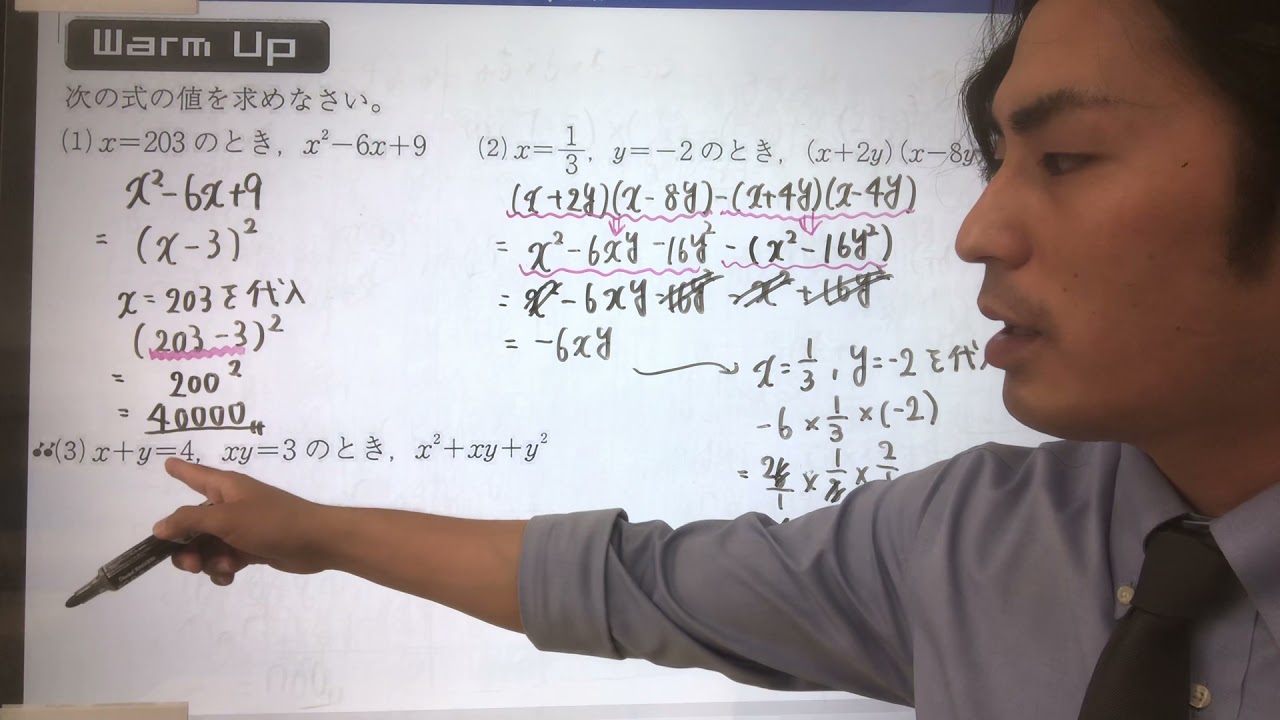 Warm Up
次の式の値を求めなさい。
(1) x=203 のとき, x²−6x+9
x²−6x+9
= (x−3)²
x=203を代入
(203−3)²
= 200²
= 40000
(2) x=1/3, y=−2 のとき, (x+2y)(x−8y
(x+2y)(x−8y)−(x+4y)(x−4y)
= x²−6xy−16y²−(x²−16y²)
= x²−6xy−16y²−x²+16y²
= −6xy
x=1/3, y=−2を代入
−6×1/3×(−2)
(3) x+y=4, xy=3 のとき, x²+xy+y²